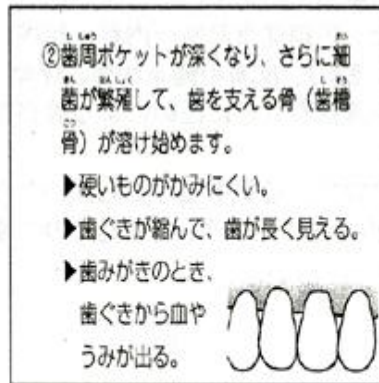 ②歯周ポケットが深くなり、さらに細
菌が繁殖して、歯を支える骨（歯槽
骨）が溶け始めます。
▶硬いものがかみにくい。
▶歯ぐきが縮んで、歯が長く見える。
▶歯みがきのとき、
歯ぐきから血や
うみが出る。